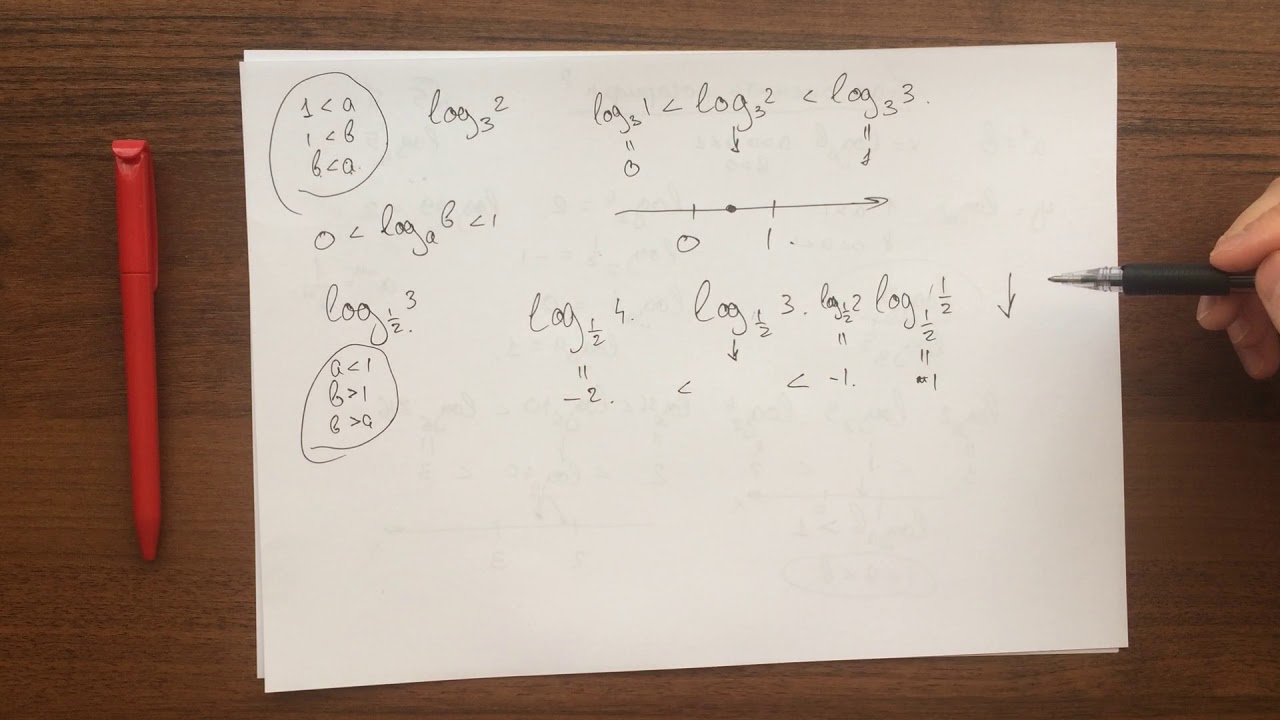 1 < a
1 < b
b < a.
log₃2
log₃1 < log₃2 < log₃3.
"
0
↓
"
1
0 1.
0 < logₐb < 1
log_{1/2.}3
a < 1
b > 1
b > a
log_{1/2}4. log_{1/2}3. log_{1/2}2 log_{1/2}1/2 ↓
" ↓ " "
-2. < < -1. 1